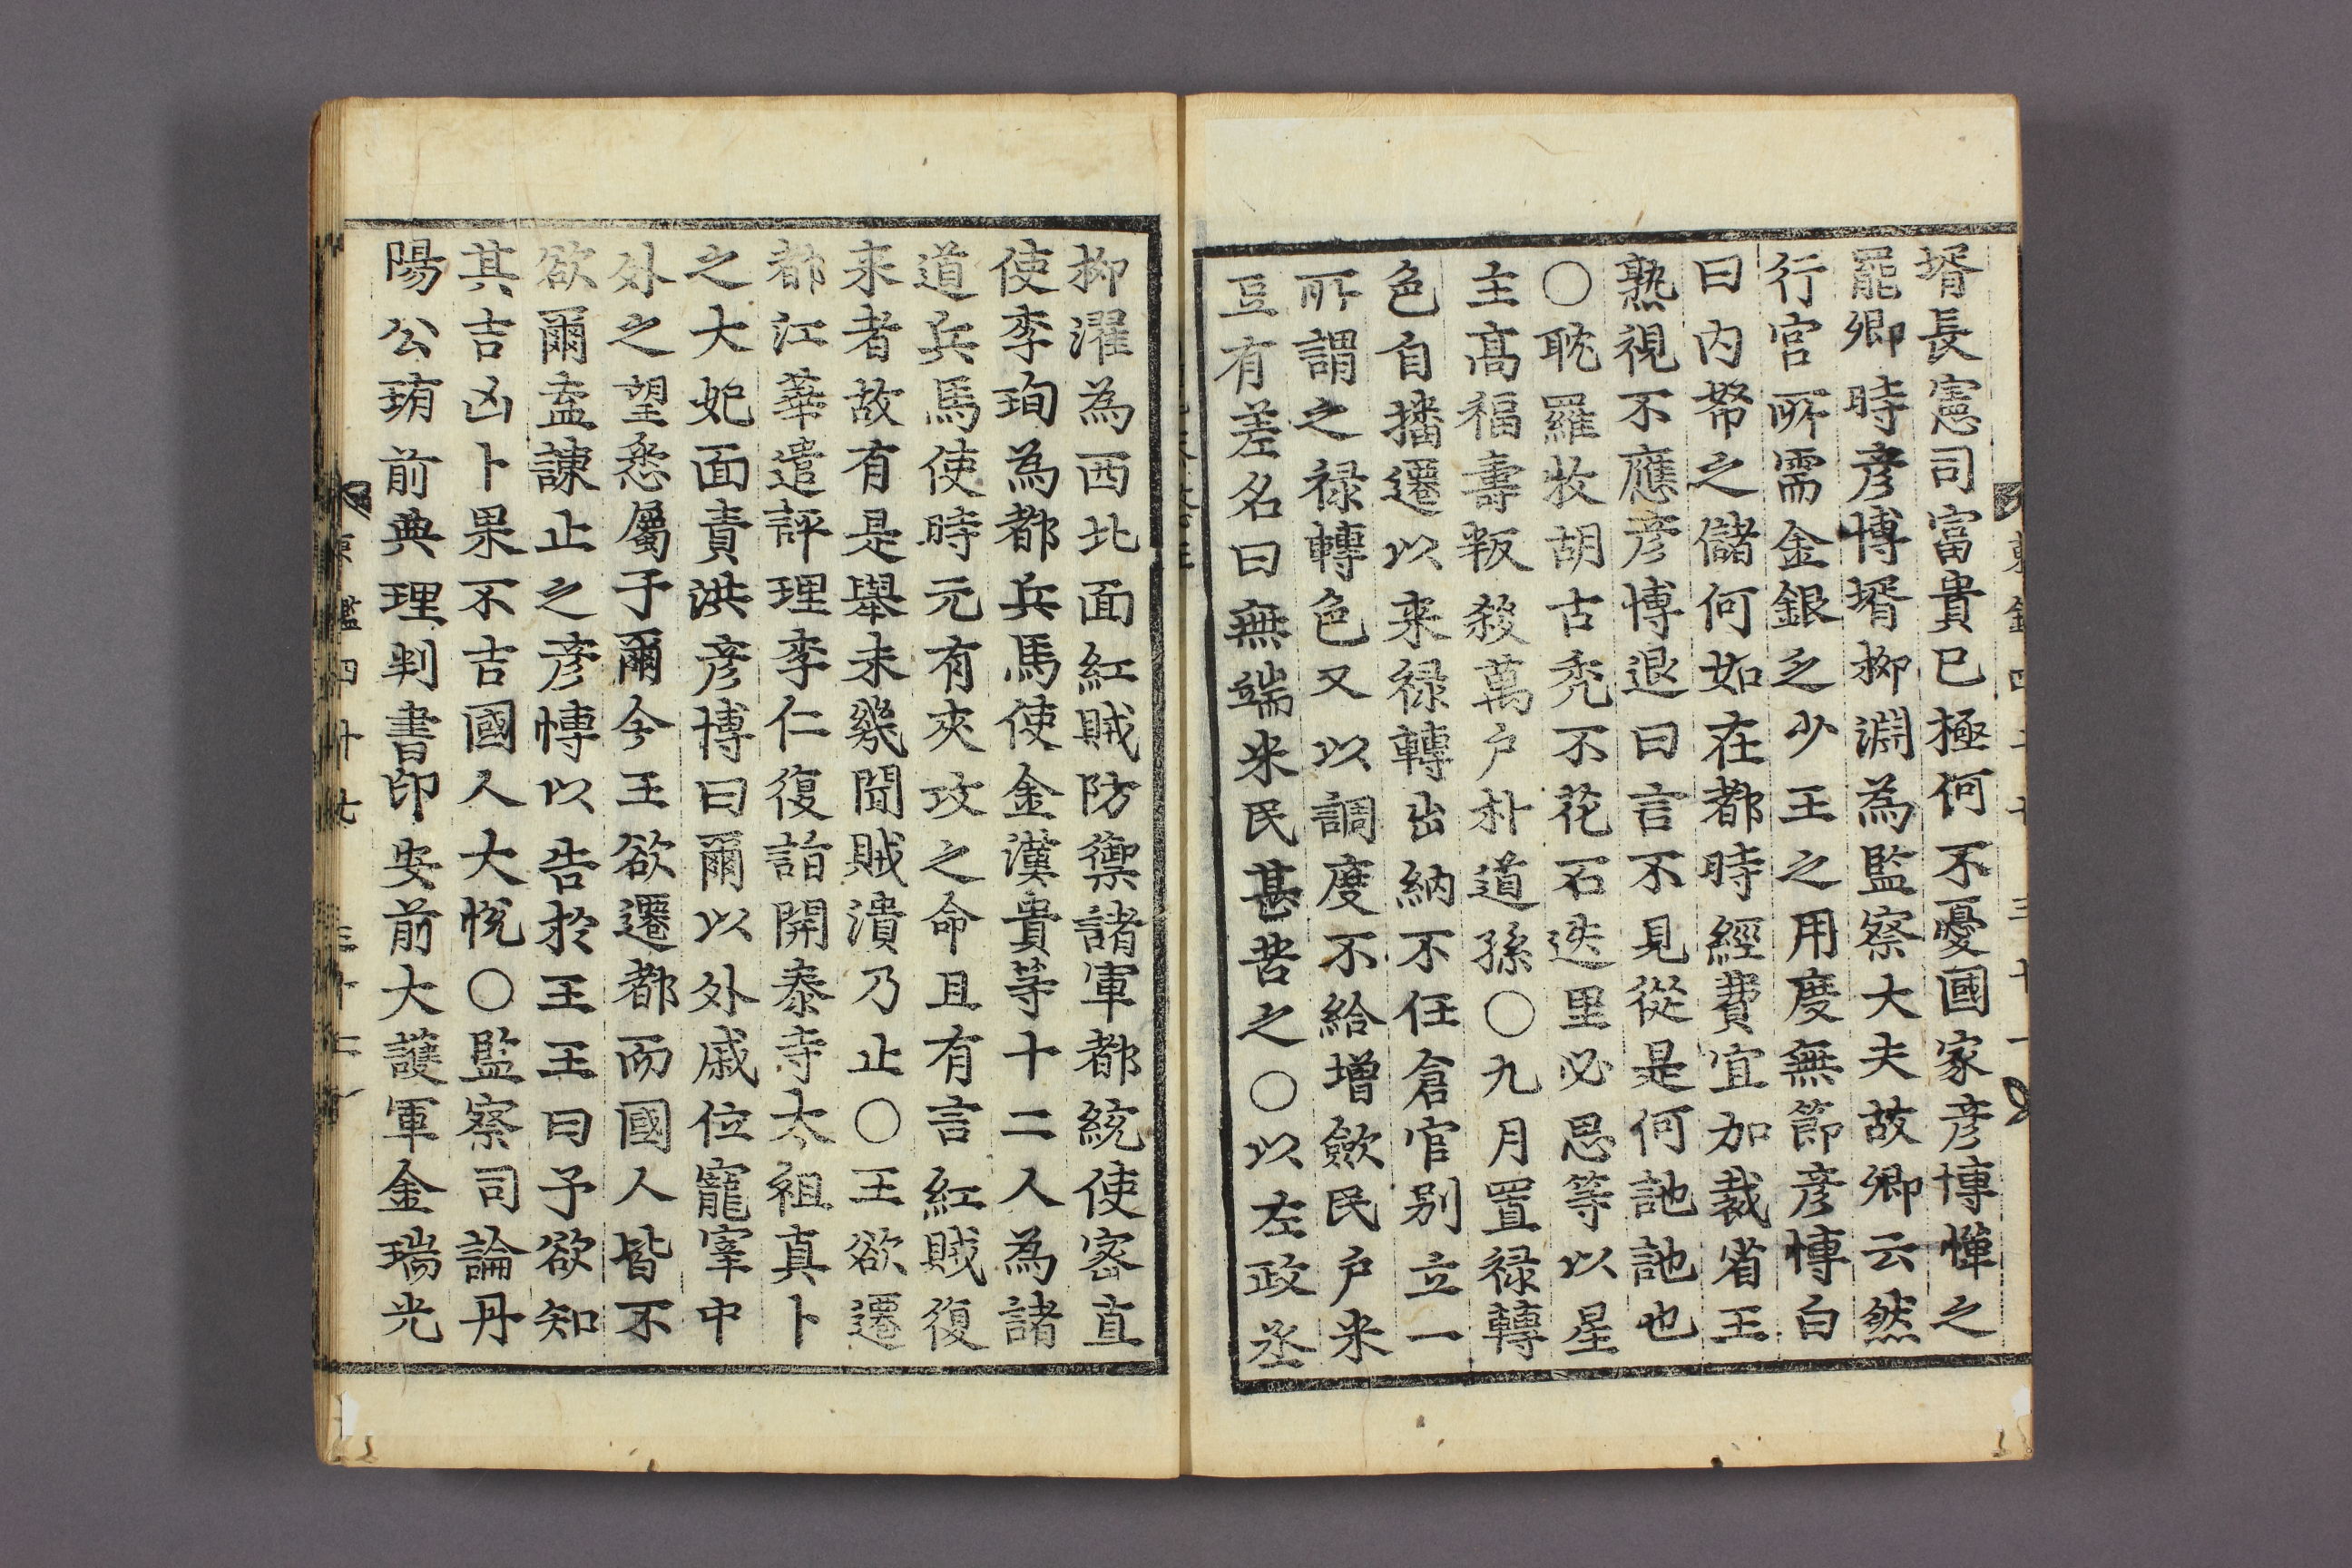 壻長憲司富貴已極何不憂國家彦博憚之
罷卿時彦博壻柳淵為監察大夫故卿云然
行宮所需金銀乏少王之用度無節彦博白
曰内帑之儲何如在都時經費宜加裁省王
熟視不應彦博退曰言不見從是何訑訑也
○耽羅牧胡古禿不花石迭里必思等以星
主髙福壽叛殺萬户朴道孫○九月置禄轉
色自播遷以来禄轉出納不任倉官别立一
所謂之禄轉色又以調度不給增歛民户米
豆有差名曰無端米民甚苦之○以左政丞
柳濯為西北面紅賊防禦諸軍都統使密直
使李珣為都兵馬使金漢貴等十二人為諸
道兵馬使時元有夾攻之命且有言紅賊復
来者故有是舉未幾聞賊潰乃止○王欲遷
都江華遣評理李仁復詣開泰寺太祖真卜
之大妃面責洪彦博曰爾以外戚位寵宰中
外之望悉屬于爾今王欲遷都而國人皆不
欲爾盍諫止之彦博以告於王王曰予欲知
其吉凶卜果不吉國人大悅○監察司論丹
陽公珛前典理判書印安前大護軍金瑞光
東鑑四十七